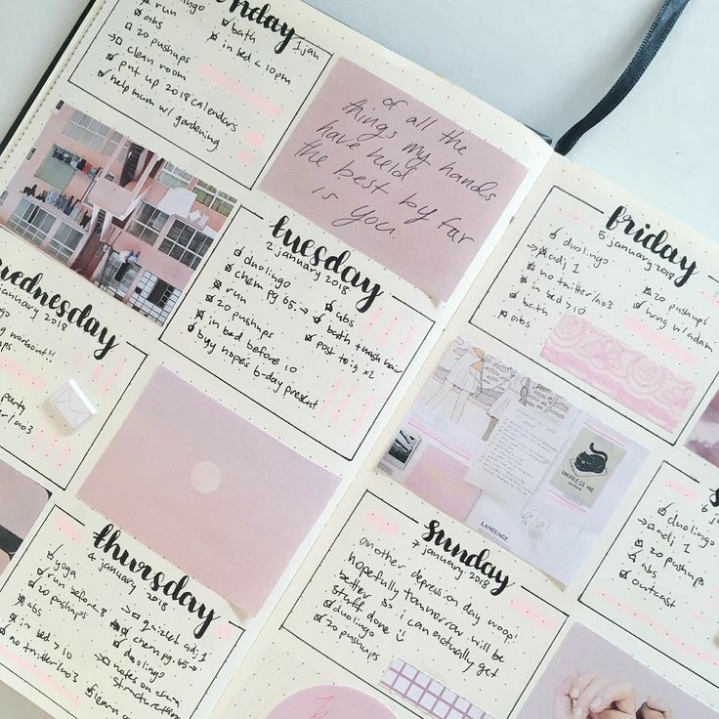 monday
1 jan
run
abs
20 pushups
clean room
put up 2018 calendars
help mum w/ gardening
bath
in bed < 10pm
of all the
things my hands
have held
the best by far
is you
tuesday
2 january 2018
duolingo
chem pg 65 →
run
20 pushups
in bed before 10
buy hope's b-day present
abs
bath + wash hair
post to ig x2
wednesday
january 2018
workout!!
party
thursday
4 january 2018
yoga
run before 8
20 pushups
abs
in bed > 10
no twitter/no3
→ quizlet adj 1
chem pg. 65 →
duolingo
→ notes on
structure
learn
friday
5 january 2018
duolingo
→ adj 1
no twitter/no3
in bed > 10
bath
abs
20 pushups
hang w/ adam
LANGUAGE
duolingo
→ adj 1
20 pushups
abs
outcast
sunday
7 january 2018
another depression day woop!
hopefully tomorrow will be
better so i can actually get
stuff done !!
duolingo
20 pushups